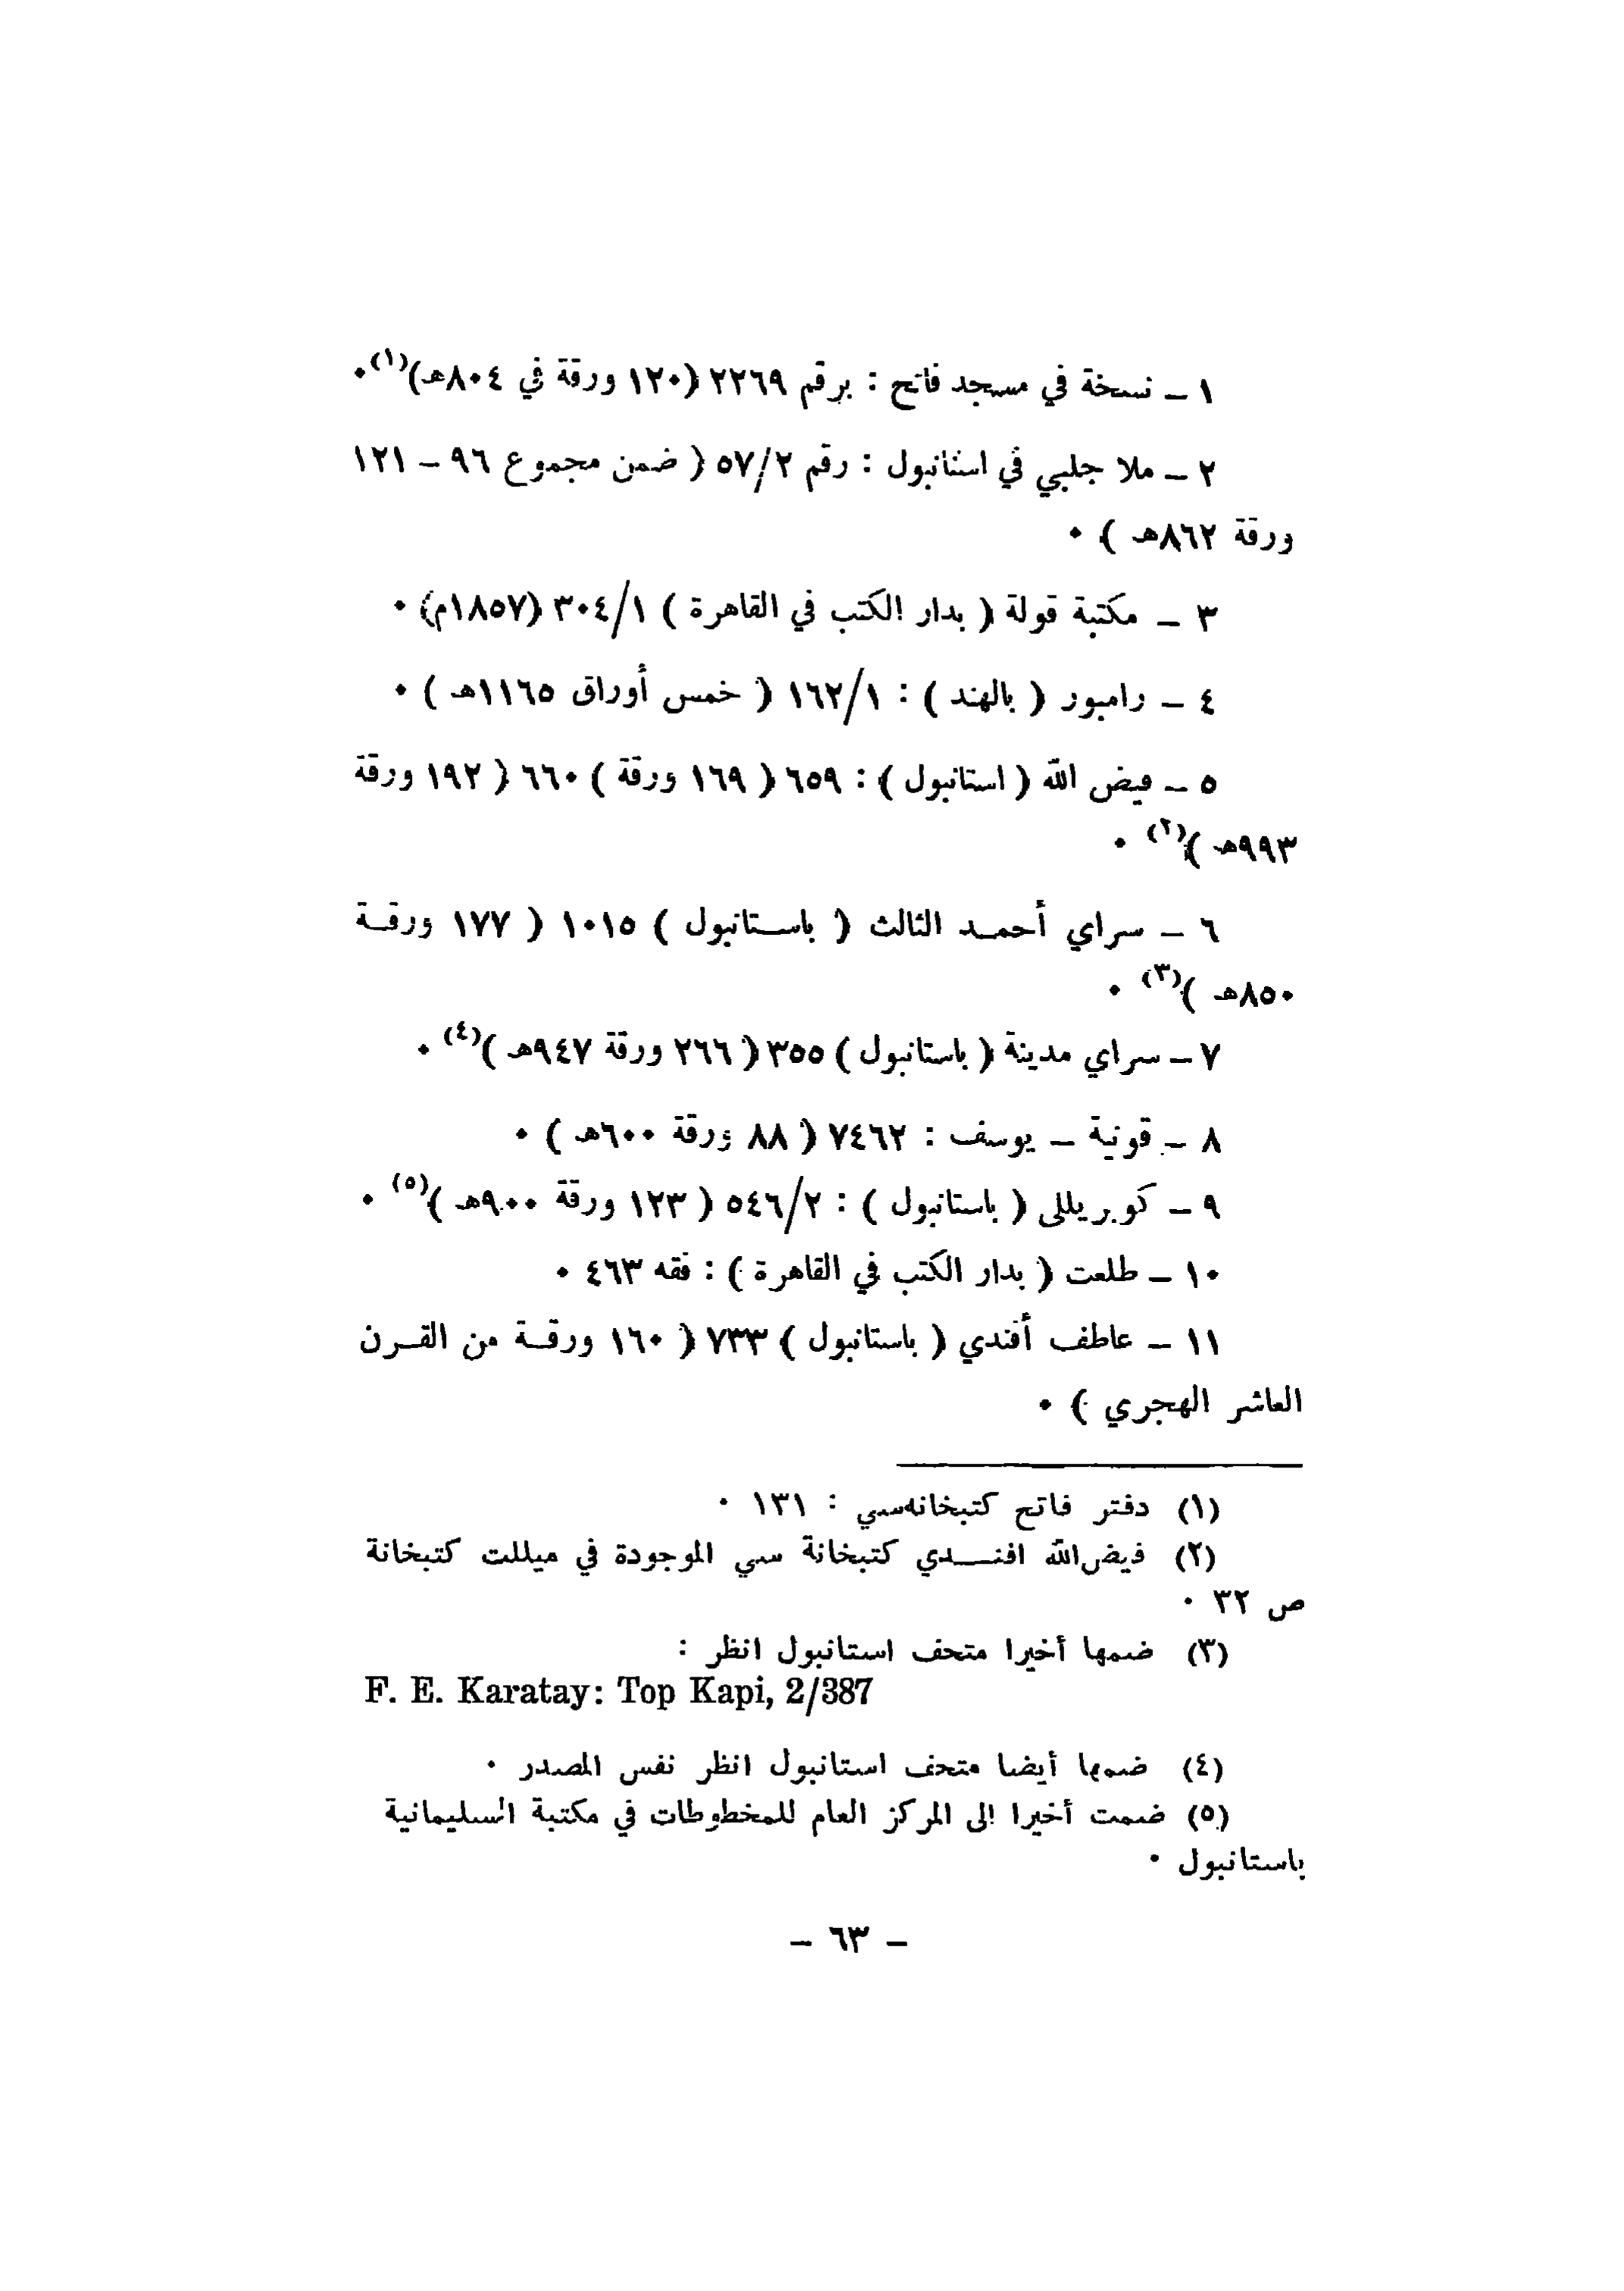 ١ – نسخة في مسجد فاتح : برقم ٢٢٦٩ (١٢٠ ورقة في ٨٠٤هـ)(١)٠
٢ – ملا جلبي في استانبول : رقم ٥٧/٢ ( ضمن مجموع ٩٦ – ١٢١
ورقة ٨٦٢هـ ) ٠
٣ – مكتبة قولة ( بدار الكتب في القاهرة ) ٣٠٤/١ (١٨٥٧م) ٠
٤ – رامبور ( بالهند ) : ١٦٢/١ ( خمس أوراق ١١٦٥هـ ) ٠
٥ – فيض الله ( استانبول ) : ٦٥٩ ( ١٦٩ ورقة ) ٦٦٠ ( ١٩٢ ورقة
٩٩٣هـ )(٢) ٠
٦ – سراي أحمـد الثالث ( باسـتانبول ) ١٠١٥ ( ١٧٧ ورقـة
٨٥٠هـ )(٣) ٠
٧ – سراي مدينة ( باستانبول ) ٣٥٥ ( ٢٦٦ ورقة ٩٤٧هـ )(٤) ٠
٨ – قونية – يوسف : ٧٤٦٢ ( ٨٨ ورقة ٦٠٠هـ ) ٠
٩ – كوبريللى ( باستانبول ) : ٥٤٦/٢ ( ١٢٣ ورقة ٩٠٠هـ )(٥) ٠
١٠ – طلعت ( بدار الكتب في القاهرة ) : فقه ٤٦٣ ٠
١١ – عاطف أفندي ( باستانبول ) ٧٣٣ ( ١٦٠ ورقـة من القـرن
العاشر الهجري ) ٠
(١) دفتر فاتح كتبخانه‌سي : ١٣١ ٠
(٢) فيض‌الله افنـــدي كتبخانة سي الموجودة في ميللت كتبخانة
ص ٣٢ ٠
(٣) ضمها أخيرا متحف استانبول انظر :
F. E. Karatay: Top Kapi, 2/387
(٤) ضمها أيضا متحف استانبول انظر نفس المصدر ٠
(٥) ضمت أخيرا الى المركز العام للمخطوطات في مكتبة السليمانية
باستانبول ٠
– ٦٣ –